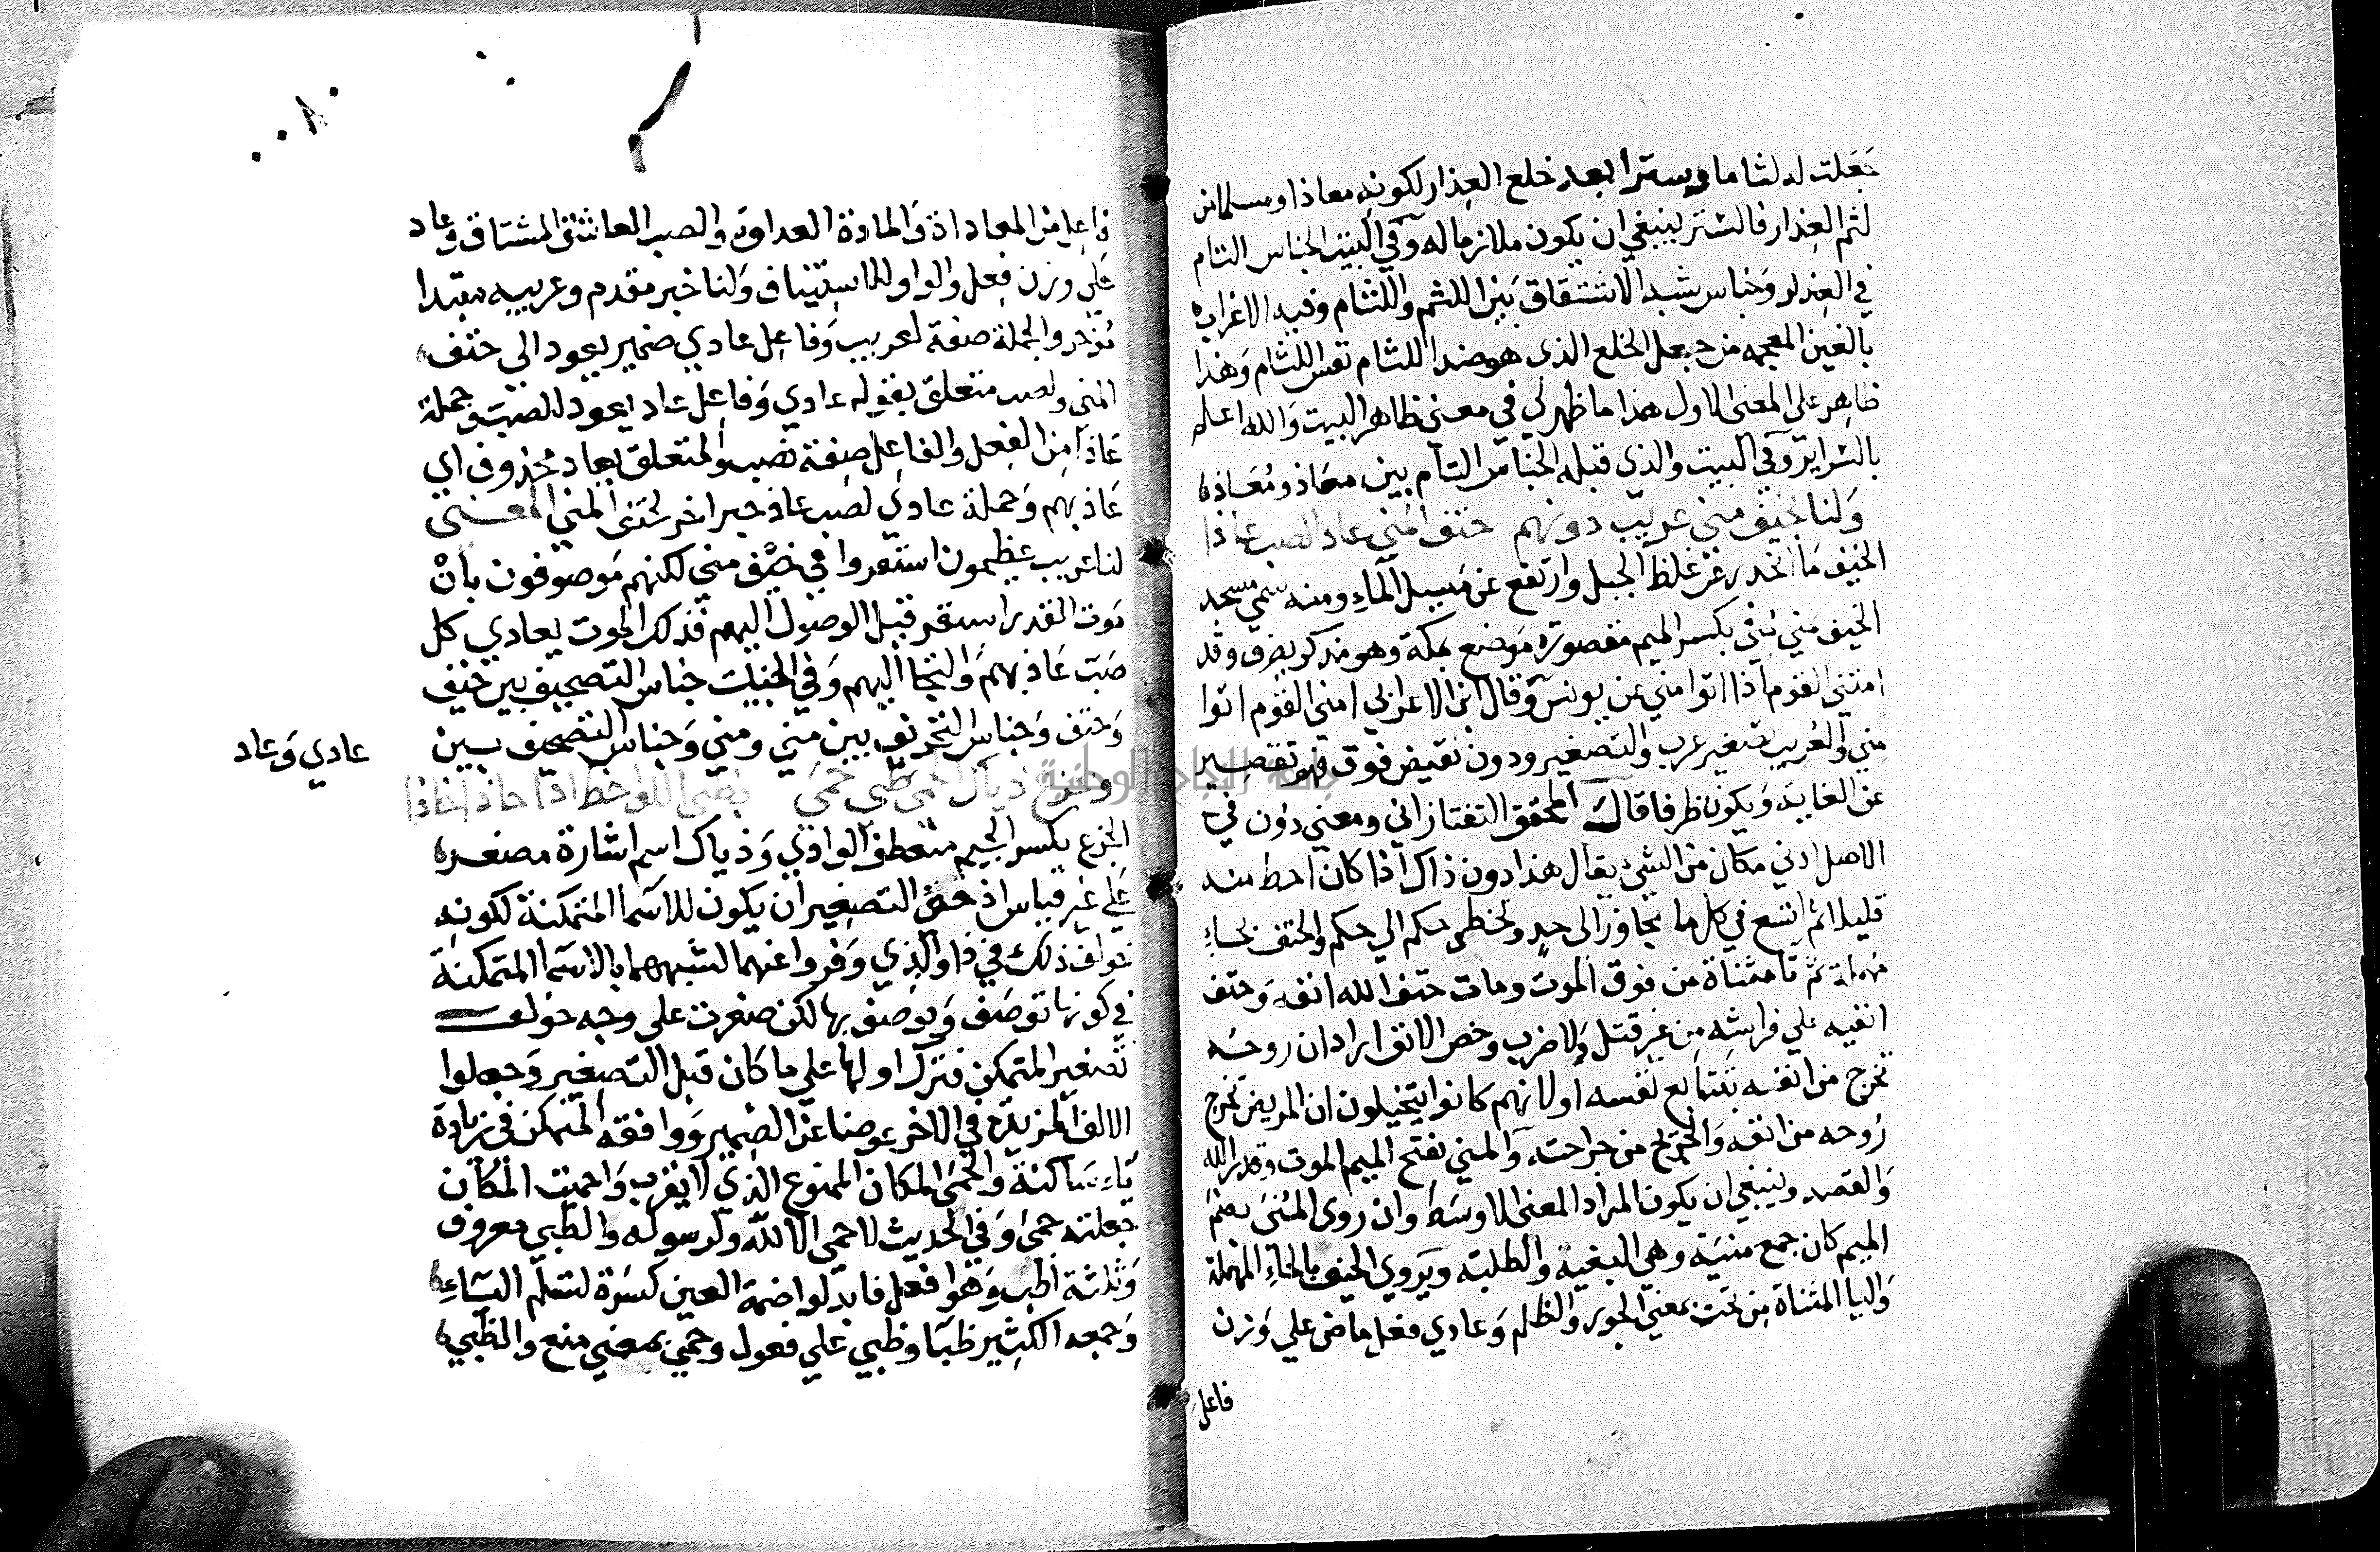 جعلت له لثاما وسترا بعد خلع العذار لكونه معاذا ومسلما من
لثم العذار فالستر ينبغي ان يكون ملازما له وفي البيت الجناس التام
في العذار وجناس شبه الاشتقاق بين اللثم واللثام وفيه الاغراب
بالغين المعجمه من جعل الخلع الذي هو ضد اللثام نفس اللثام وهذا
ظاهر على المعنى الاول هذا ما ظهر لي في معنى ظاهر البيت والله اعلم
بالسراير وفي البيت والذي قبله الجناس التام بين معاذ ومعاذ
ولنا بخيف منى عريب دونهم حتف المنى عادى لصب عاذا
الخيف ما انحدر عن غلظ الجبل وارتفع عن مسيل الماء ومنه سمي مسجد
الخيف منى بكسر الميم مقصورة موضع بمكة وهو مذكر يصرف وقد
امتنى القوم اذا اتوا منى عن يونس وقال ابن الاعرابي امنى القوم اتوا
منى والعريب تصغير عرب والتصغير ودون نقيض فوق وهو تقصير
عن الغاية ويكون ظرفا قال المحقق التفتازاني ومعنى دون في
الاصل ادنى مكان من الشيء يقال هذا دون ذاك اذا كان احط منه
قليلا ثم اتسع في كل ما تجاوز الى حد وتخطى حكم الي حكم والحتف بحاء
مهملة ثم تا مثناة من فوق الموت ومات حتف الله انفه وحتف
انفيه على فراشه من غير قتل ولا ضرب وخص الانف اراد ان روحه
تخرج من انفه بتتابع نفسه او لانهم كانوا يتخيلون ان المريض تخرج
روحه من انفه والجريح من جراحته والمنى بفتح الميم الموت وقدر الله
والقصد وينبغي ان يكون المراد المعنى الاوسط وان روى المنى بضم
الميم كان جمع منية وهي البغية والطلبة ويروى الحيف بالحاء المهملة
واليا المثناة من تحت بمعنى الجور والظلم وعادي فعل ماض على وزن
فاعل
فاعل من المعاداة والمادة العداوة والصب العاشق المشتاق وعاد
على وزن فعل والواو للاستيناف ولنا خبر مقدم وعريب مبتدا
مؤخر والجملة صفة لعريب وفاعل عادي ضمير يعود الي حتف
المنى ولصب متعلق بقوله عادي وفاعل عاد يعود للصب وجملة
عاذ من الفعل والفاعل صفة لصب والمتعلق بعاد محذوف اي
عاذ بهم وجملة عادى لصب عاذ خبر اخر لحتف المنى المعنى
لنا عريب عظيمون استقروا في خيف منى لكنهم موصوفون بان
موت القدر استقر قبل الوصول اليهم فذلك الموت يعادي كل
صب عاذ بهم والتجا اليهم وفي البيت جناس التصحيف بين خيف
وحتف وجناس التحريف بين منى ومنى وجناس التصحيف بين
عادي وعاد
وبجزع ذياك الحمى ظبي حمى بظبى اللواحظ اذا حاذ اخاذا
الجزع بكسر الجيم منعطف الوادي وذياك اسم اشارة مصغر
على غير قياس اذ حق التصغير ان يكون للاسما المتمكنة لكونه
خولف ذلك في ذا والذي وفروعهما لشبههما بالاسما المتمكنة
في كونها توصف ويوصف بها لكن صغرت على وجه خولف
تصغير المتمكن فترك اولها على ما كان قبل التصغير وجعلوا
الالف المزيدة في الاخر عوضا عن الضم ووافقه المتمكن في زيادة
ياء ساكنة والحمى المكان الممنوع الذي لا يقرب واحميت المكان
جعلته حمى وفي الحديث لا حمى الا لله ولرسوله والظبي معروف
وثلثة اظب وهو افعل فابدلوا ضمة العين كسرة لتسلم الياء
وجمعه الكثير ظبا وظبي على فعول وحمى بمعنى منع والظبي